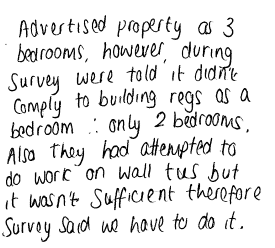 Advertised property as 3
bedrooms, however, during
Survey were told it didn't
comply to building regs as a
bedroom ∴ only 2 bedrooms.
Also they had attempted to
do work on wall ties but
it wasn't sufficient therefore
Survey said we have to do it.